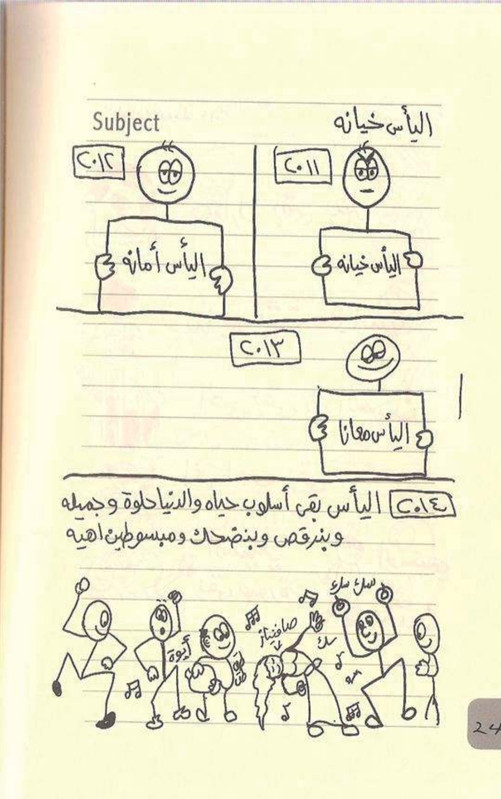 Subject
اليأس خيانه
٢٠١١
اليأس خيانه
٢٠١٢
اليأس أمانه
٢٠١٣
اليأس معانا
٢٠١٤
اليأس بقى أسلوب حياه والدنيا حلوة وجميله
وبنرقص وبنضحك ومبسوطين اهيه
سك سك
سك
صافيناز
أيوة
24